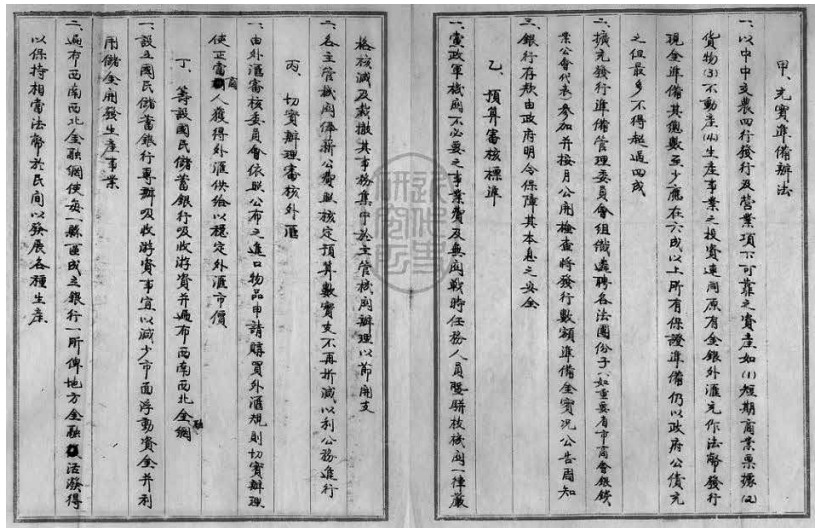 甲、充實準備辦法
一、以中中交農四行發行及營業項下可靠之資產如(1)短期商業票據(2)
貨物(3)不動產(4)生產事業之投資連同原有金銀外滙充作法幣發行
現金準備其總數至少應在六成以上所有保證準備仍以政府公債充
之但最多不得超過四成
二、擴充發行準備管理委員會組織遴聘各法團份子(如重要省市商會銀錢
業公會代表)參加并按月公開檢查將發行數額準備金實況公告週知
三、銀行存款由政府明令保障其本息之安全
乙、預算審核標準
一、黨政軍機關不必要之事業費及無關戰時任務人員暨駢枝機關一律嚴
格核減及裁撤其事務集中於主管機關辦理以節開支
二、各主管機關俸薪公費照核定預算數實支不再折減以利公務進行
丙、切實辦理審核外滙
一、由外滙審核委員會依照公布之進口物品申請購買外滙規則切實辦理
使正當商人獲得外滙供給以穩定外滙市價
丁、籌設國民儲蓄銀行吸收游資并遍布西南西北金融網
一、設立國民儲蓄銀行專辦吸收游資事宜以減少市面浮動資金并利
用儲金開發生產事業
二、遍布西南西北金融網使每一縣區成立銀行一所俾地方金融活潑得
以保持相當法幣於民間以發展各種生產